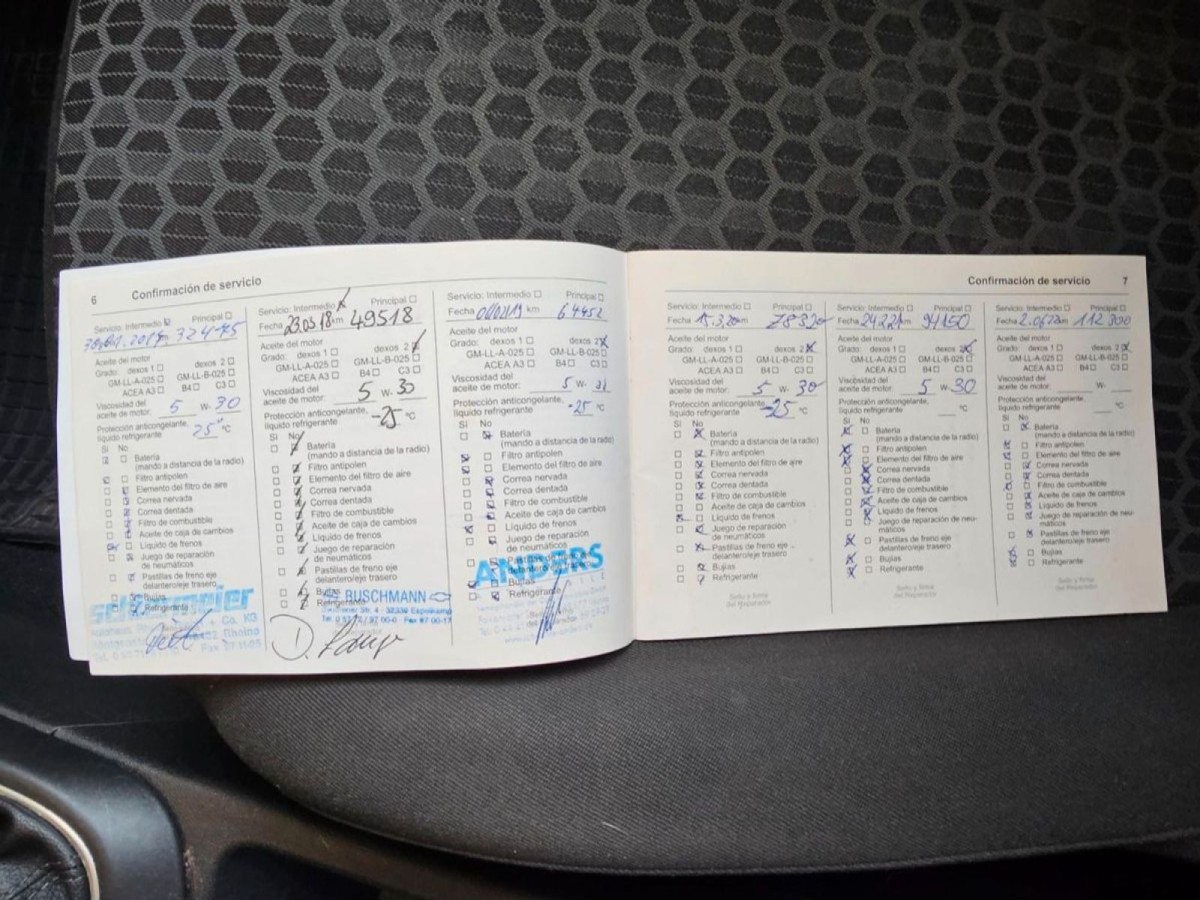 6 Confirmación de servicio
Servicio: Intermedio Principal
32445
Aceite del motor
Grado: dexos 1 dexos 2
GM-LL-A-025 GM-LL-B-025
ACEA A3 B4 C3
Viscosidad del
aceite de motor: 5 W- 30
Protección anticongelante,
líquido refrigerante 25° °C
Sí No
Batería
(mando a distancia de la radio)
Filtro antipolen
Elemento del filtro de aire
Correa nervada
Correa dentada
Filtro de combustible
Aceite de caja de cambios
Líquido de frenos
Juego de reparación
de neumáticos
Pastillas de freno eje
delantero/eje trasero
Bujías
Refrigerante
Servicio: Intermedio Principal
Fecha 23.03.18 km 49518
Aceite del motor
Grado: dexos 1 dexos 2
GM-LL-A-025 GM-LL-B-025
ACEA A3 B4 C3
Viscosidad del
aceite de motor: 5 W- 30
Protección anticongelante,
líquido refrigerante -25 °C
Sí No
Batería
(mando a distancia de la radio)
Filtro antipolen
Elemento del filtro de aire
Correa nervada
Correa dentada
Filtro de combustible
Aceite de caja de cambios
Líquido de frenos
Juego de reparación
de neumáticos
Pastillas de freno eje
delantero/eje trasero
Bujías
Refrigerante
RUSCHMANN
Servicio: Intermedio Principal
Fecha km 64452
Aceite del motor
Grado: dexos 1 dexos 2
GM-LL-A-025 GM-LL-B-025
ACEA A3 B4 C3
Viscosidad del
aceite de motor: 5 W-
Protección anticongelante,
líquido refrigerante -25 °C
Sí No
Batería
(mando a distancia de la radio)
Filtro antipolen
Elemento del filtro de aire
Correa nervada
Correa dentada
Filtro de combustible
Aceite de caja de cambios
Líquido de frenos
Juego de reparación
de neumáticos
Pastillas de freno eje
delantero/eje trasero
Bujías
Refrigerante
ANDERS
Confirmación de servicio 7
Servicio: Intermedio Principal
Fecha 15.3.20 km 78320
Aceite del motor
Grado: dexos 1 dexos 2
GM-LL-A-025 GM-LL-B-025
ACEA A3 B4 C3
Viscosidad del
aceite de motor: 5 W- 30
Protección anticongelante,
líquido refrigerante -25 °C
Sí No
Batería
(mando a distancia de la radio)
Filtro antipolen
Elemento del filtro de aire
Correa nervada
Correa dentada
Filtro de combustible
Aceite de caja de cambios
Líquido de frenos
Juego de reparación
de neumáticos
Pastillas de freno eje
delantero/eje trasero
Bujías
Refrigerante
Sello y firma
del Reparador
Servicio: Intermedio Principal
Fecha km 94150
Aceite del motor
Grado: dexos 1 dexos 2
GM-LL-A-025 GM-LL-B-025
ACEA A3 B4 C3
Viscosidad del
aceite de motor: 5 W- 30
Protección anticongelante,
líquido refrigerante °C
Sí No
Batería
(mando a distancia de la radio)
Filtro antipolen
Elemento del filtro de aire
Correa nervada
Correa dentada
Filtro de combustible
Aceite de caja de cambios
Líquido de frenos
Juego de reparación de neu-
máticos
Pastillas de freno eje
delantero/eje trasero
Bujías
Refrigerante
Sello y firma
del Reparador
Servicio: Intermedio Principal
Fecha 2.06.22 km 112300
Aceite del motor
Grado: dexos 1 dexos 2
GM-LL-A-025 GM-LL-B-025
ACEA A3 B4 C3
Viscosidad del
aceite de motor: W-
Protección anticongelante,
líquido refrigerante °C
Sí No
Batería
(mando a distancia de la radio)
Filtro antipolen
Elemento del filtro de aire
Correa nervada
Correa dentada
Filtro de combustible
Aceite de caja de cambios
Líquido de frenos
Juego de reparación de neu-
máticos
Pastillas de freno eje
delantero/eje trasero
Bujías
Refrigerante
Sello y firma
del Reparador